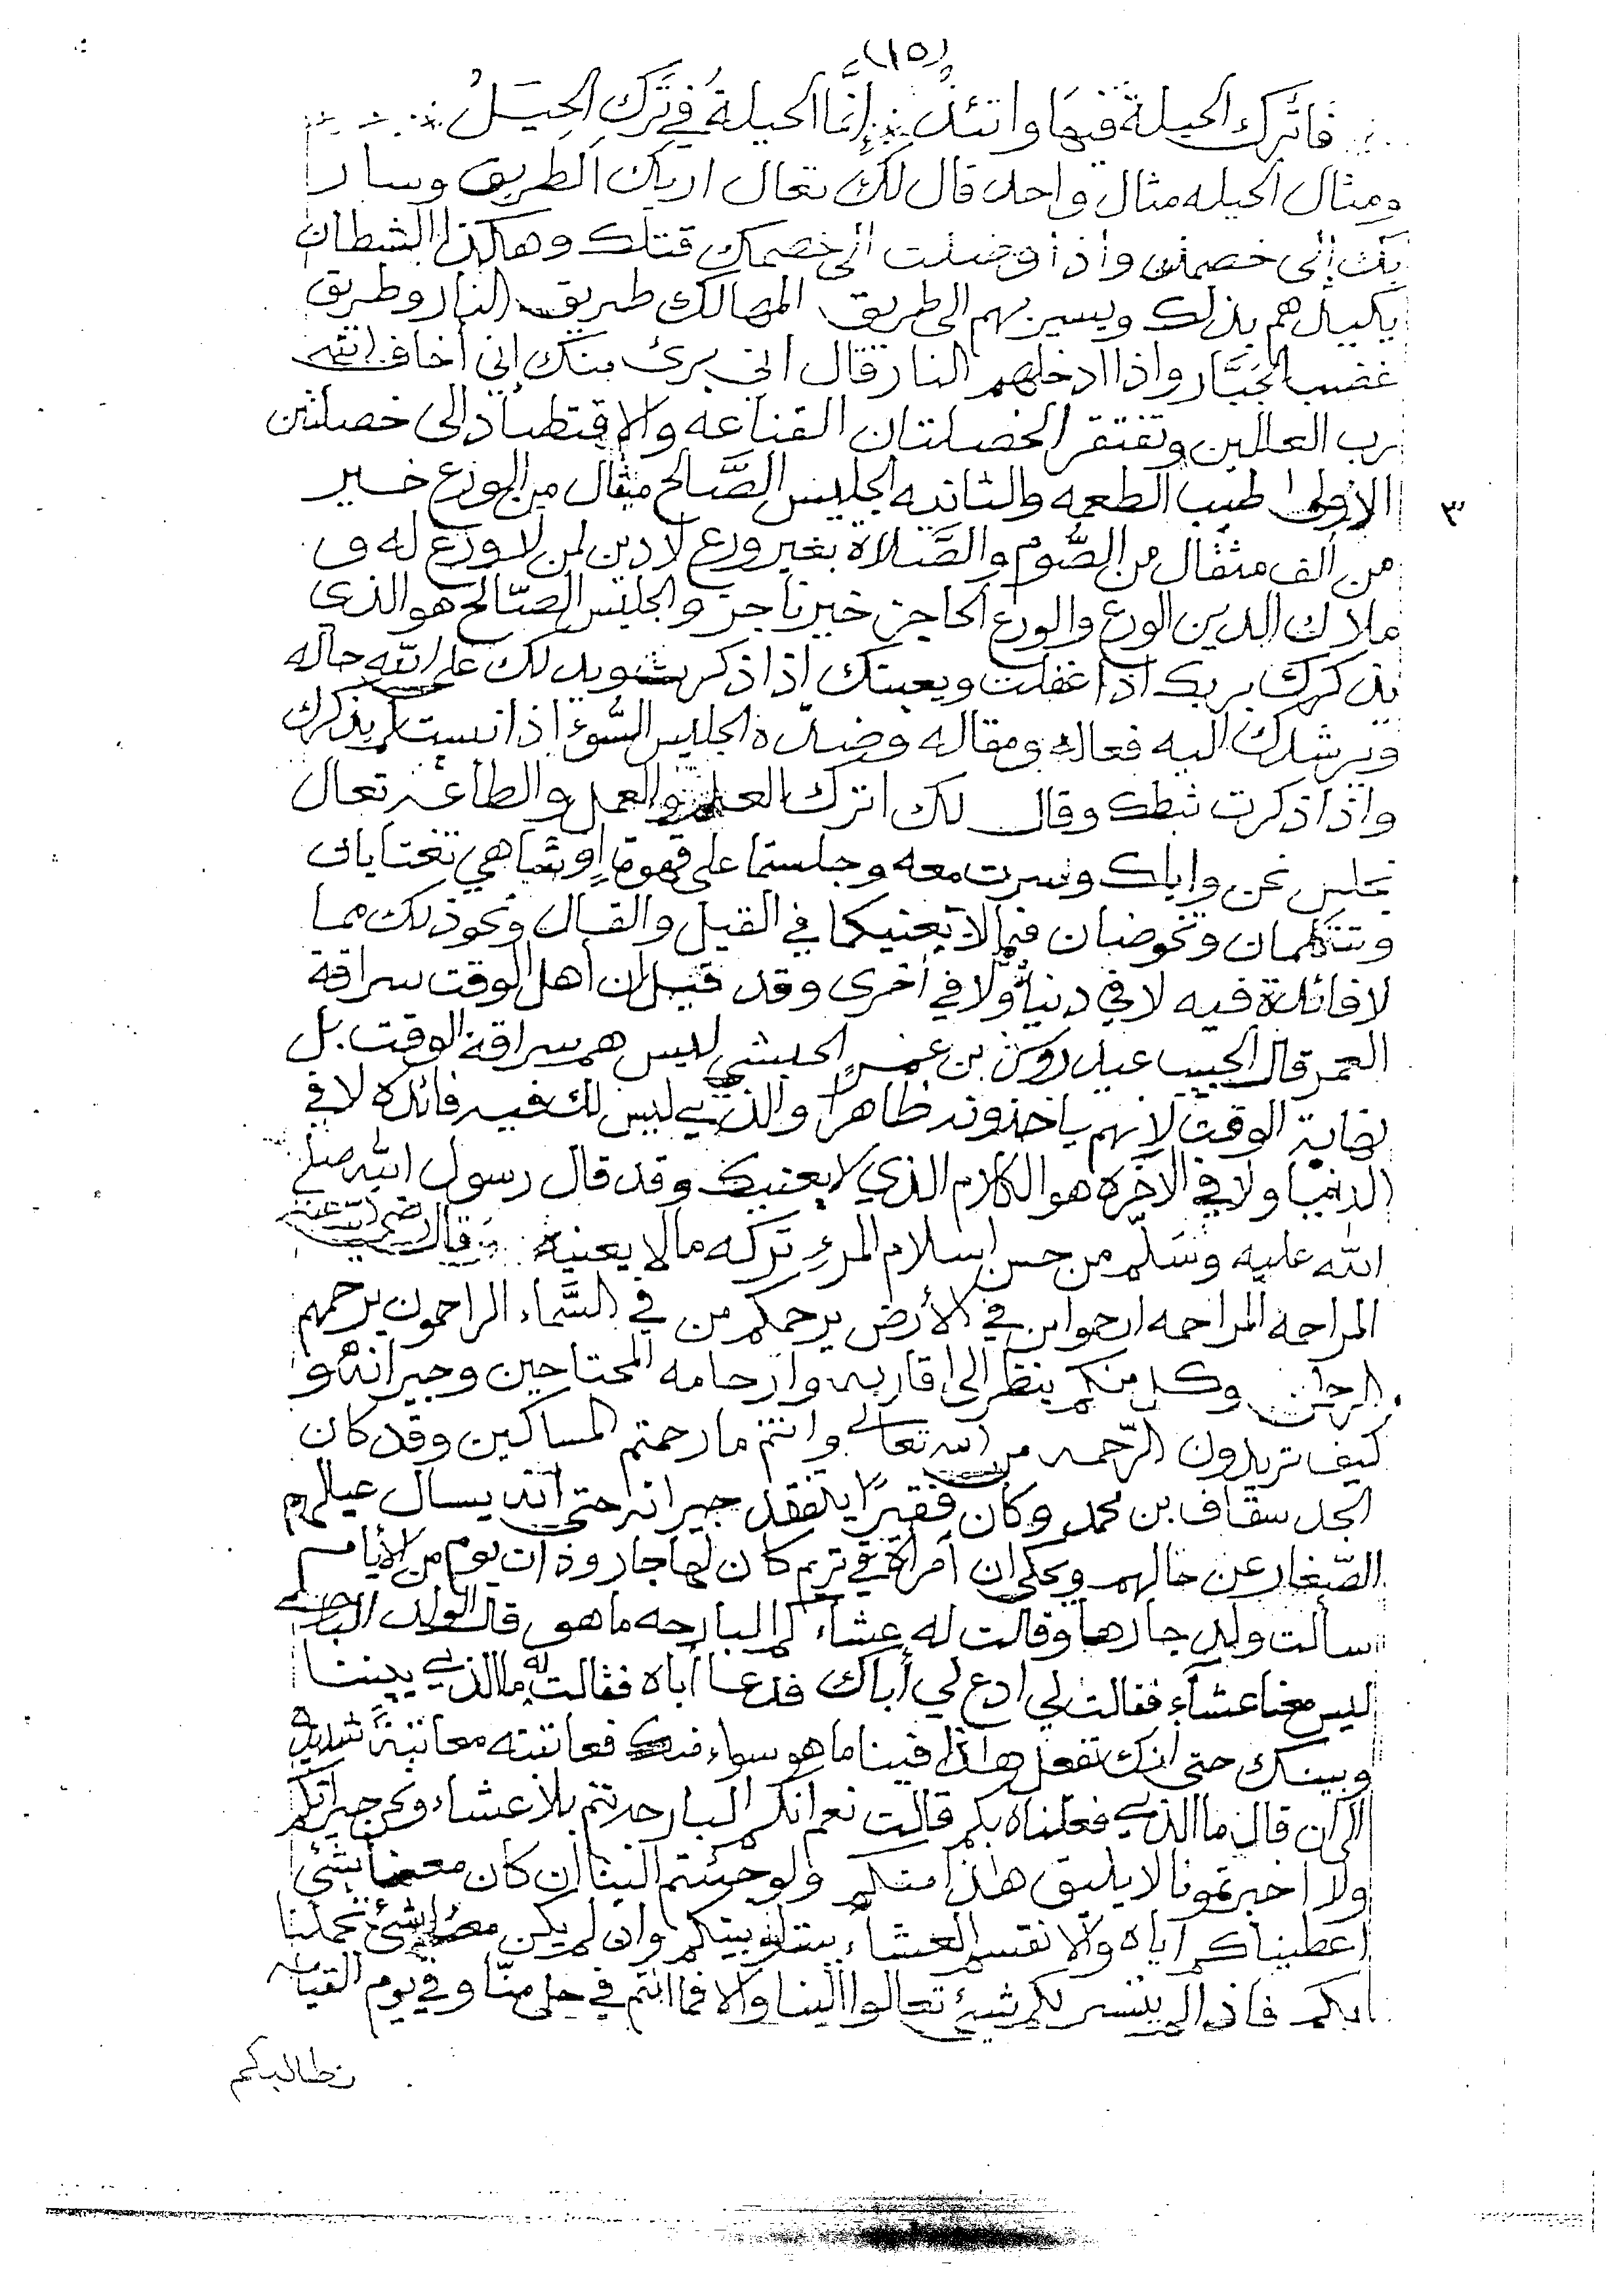 (١٥)
فاترك الحيلة فيها واتئد ∴ إنَّما الحيلةُ في تَركِ الحِيَلُ
ومثال الحيله مثال واحد قال لك تعال اريك الطريق وسار
بك إلى خصمك واذا وصلت الى خصمك قتلك وهاكذا الشطان
يكيدهم بذلك ويسير بهم الى طريق المهالك طريق النار وطريق
غضب الجَبَّار واذا ادخلهم النار قال اني برئ منك إني أخاف الله
رب العالمين وتفتقر الخصلتان القناعه والاقتصاد الى خصلتين
الأولى طيب الطعمه والثانيه الجليس الصَّالح مثقال من الورع خير
من ألف مثقال من الصُّوم والصَّلاة بغير ورع لا دين لمن لا ورع له و
ملاك الدين الورع والورع الحاجز خير ناجز والجليس الصّالح هو الذي
يذكرك بربك اذا غفلت ويعينك إذا ذكرت ويدلك على الله حاله
ويرشدك اليه فعاله ومقاله وضدّه الجليس السُّوء اذا نست لم يذكرك
واذا ذكرت ثبطك وقال لك اترك العلم والعمل والطاعه تعال
نجلس نحن واياك وسرت معه وجلستما على قهوة او شاهي تغتابان
وتتكلمان وتخوضان فيما لا يعنيكما في القيل والقال ونحو ذلك مما
لا فائدة فيه لا في دنيا ولا في أخرى وقد قيل ان أهل الوقت سراقة
العمر قال الحبيب عيدروس بن عمر الحبشي ليس هم سراقة الوقت بل
نهابة الوقت لانهم ياخذونه ظاهرا والذي ليس لك فيه فائدة لا في
الدنيا ولا في الآخرة هو الكلام الذي لا يعنيك وقد قال رسول الله صلى
الله عليه وسَلّم من حسن إسلام المرءِ تركه مالا يعنيه ∴ قال رضي الله عنه
المراحمه المراحمه ارحموا من في الأرض يرحمكم من في السَّماء الراحمون يرحمهم
الرحمن وكل منكم ينظر الى اقاربه وارحامه المحتاجين وجيرانه و
كيف تريدون الرّحمه من الله تعالى وانتم ما رحمتم المساكين وقد كان
الجد سقاف بن محمد وكان فقيرًا يتفقد جيرانه حتى انه يسال عيالهم
الصّغار عن حالهم ويحكى ان أمرأة في تريم كان لها جار وذات يوم من الأيام
سألت ولد جارها وقالت له عشاء كم البارحه ما هو قال الولد البارحه
ليس معنا عشاء فقالت لي ادع لي أباك فدعا أباه فقالت له ما الذي بيننا
وبينك حتى انك تفعل هاذا فينا ما هو سواء منك فعاتبته معاتبةً شديدة
الى ان قال ما الذي فعلناه بكم قالت نعم انكم البارحه نتم بلا عشاء ونحن جيرانكم
ولا اخبرتمونا لا يليق هاذا منكم ولو جئتم الينا ان كان معنا شئ
أعطيناكم اياه والا نقسم العشاء بيننا وبينكم وان لم يكن معنا شئ تحملنا
بكم فاذا لم يتيسر لكم شيئ تعالوا الينا والا فما انتم في حل منّا وفي يوم القيامه
نطالبكم
٣